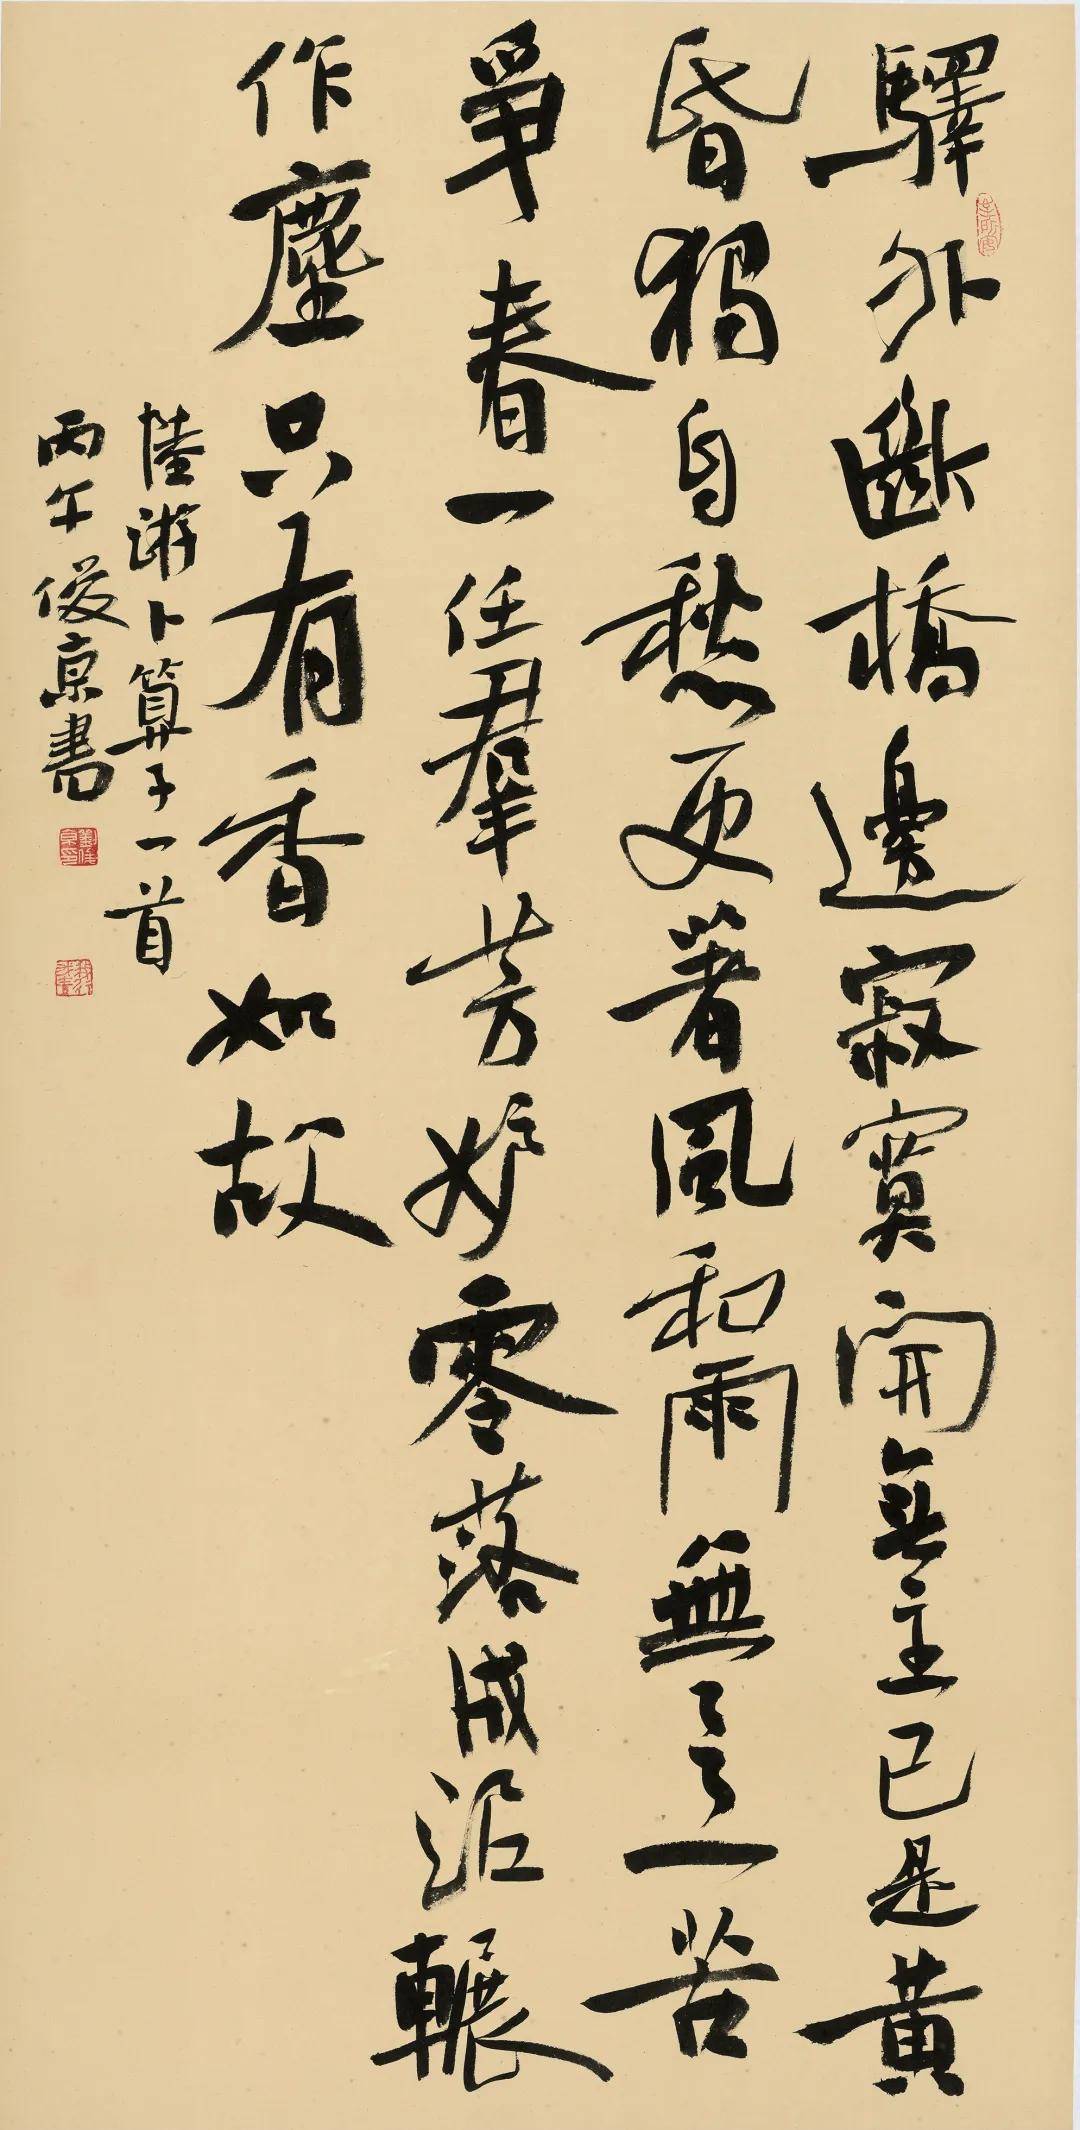 驛外斷橋邊寂寞開無主已是黃
昏獨自愁更著風和雨無意苦
爭春一任羣芳妒零落成泥輾
作塵只有香如故
陸游卜算子一首
丙午俊京書
劉俊京印